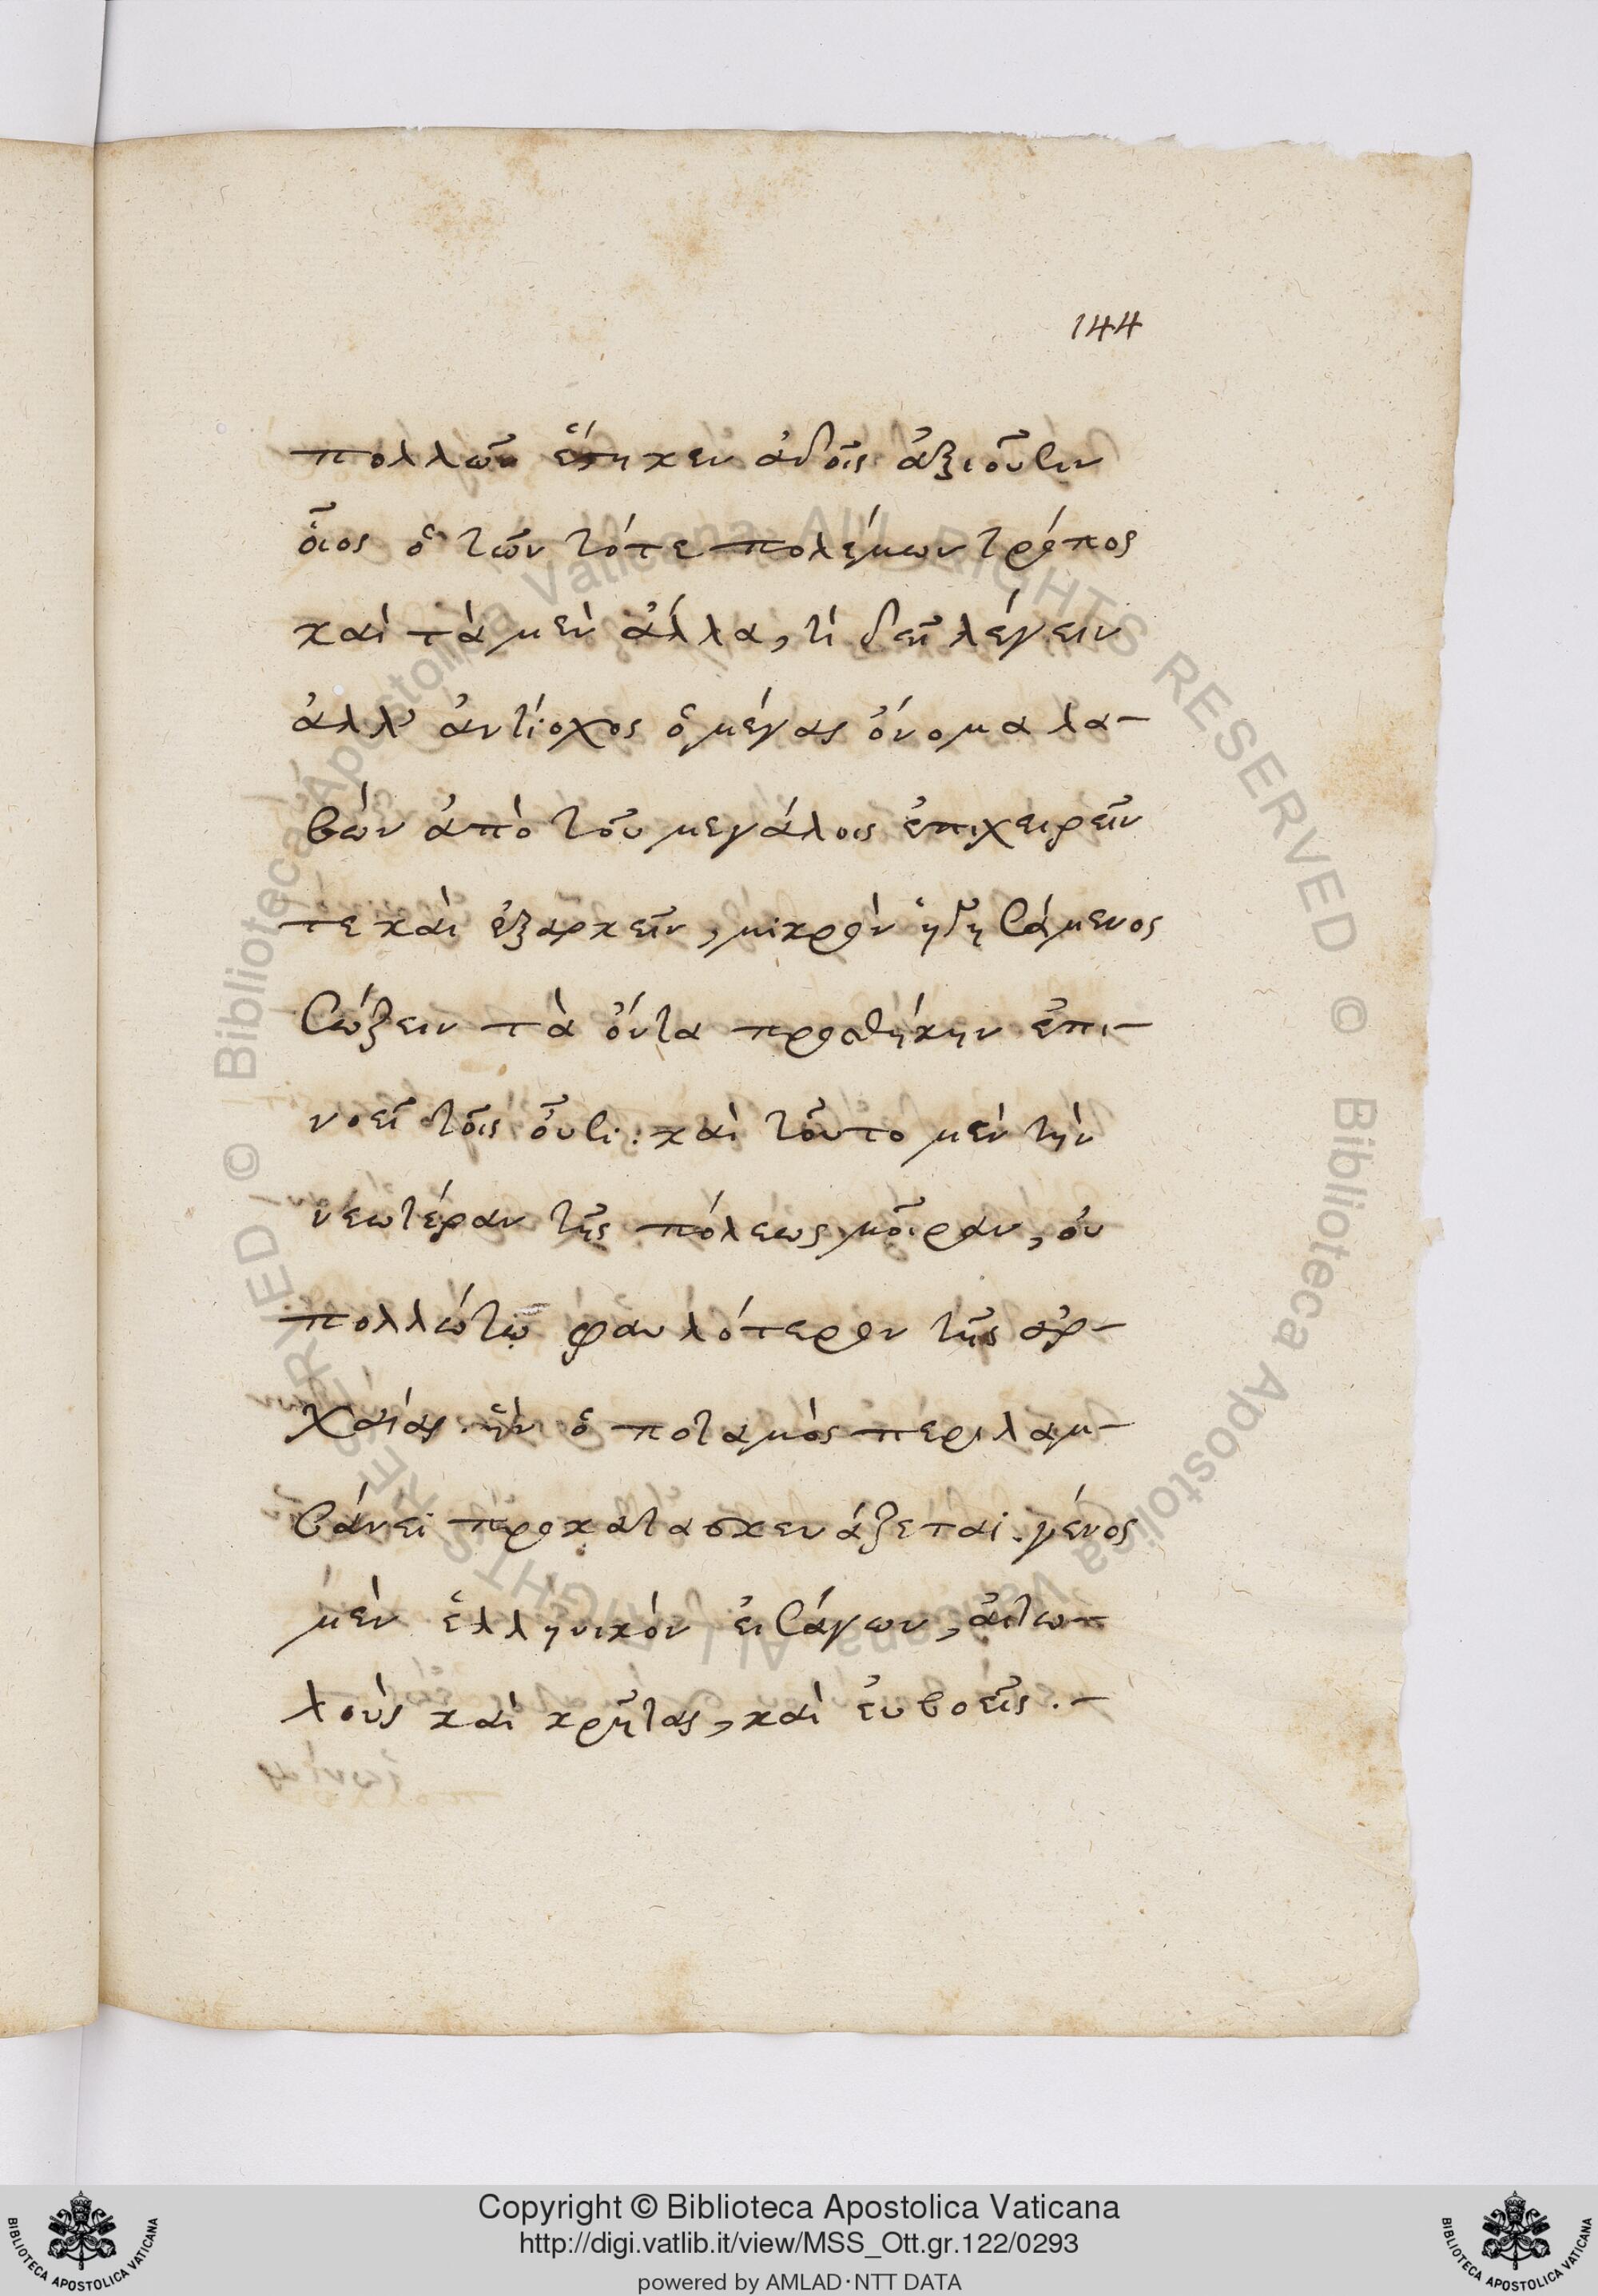 144
πολλῶν ἕστηκεν ἀνδοῖς ἀξιοῦσιν
οἷος ὁ τῶν τότε πολέμων τρόπος
καὶ τὰ μὲν ἄλλα, τί δεῖ λέγειν
ἀλλ' ἀντίοχος ὁ μέγας ὄνομα λα-
βὼν ἀπὸ τοῦ μεγάλοις ἐπιχειρεῖν
τε καὶ ἐξαρκεῖν, μικρὸν ἡγησάμενος
σώζειν τὰ ὄντα προσθήκην ἐπι-
νοεῖ τοῖς οὖσι. καὶ τοῦτο μὲν τὴν
νεωτέραν τῆς πόλεως μοῖραν, οὐ
πολλώτῳ φαυλότερον τῆς ἀρ-
χαίας ἣν ὁ ποταμὸς περιλαμ-
βάνει προκατασκευάζεται. γένος
μὲν ἑλληνικὸν εἰσάγων, αἰτω-
λοὺς καὶ κρῆτας, καὶ εὐβοεῖς.-
© Biblioteca Apostolica Vaticana ALL RIGHTS RESERVED
© Biblioteca Apostolica Vaticana ALL RIGHTS RESERVED
Copyright © Biblioteca Apostolica Vaticana
http://digi.vatlib.it/view/MSS_Ott.gr.122/0293
powered by AMLAD·NTT DATA
BIBLIOTECA APOSTOLICA VATICANA
BIBLIOTECA APOSTOLICA VATICANA